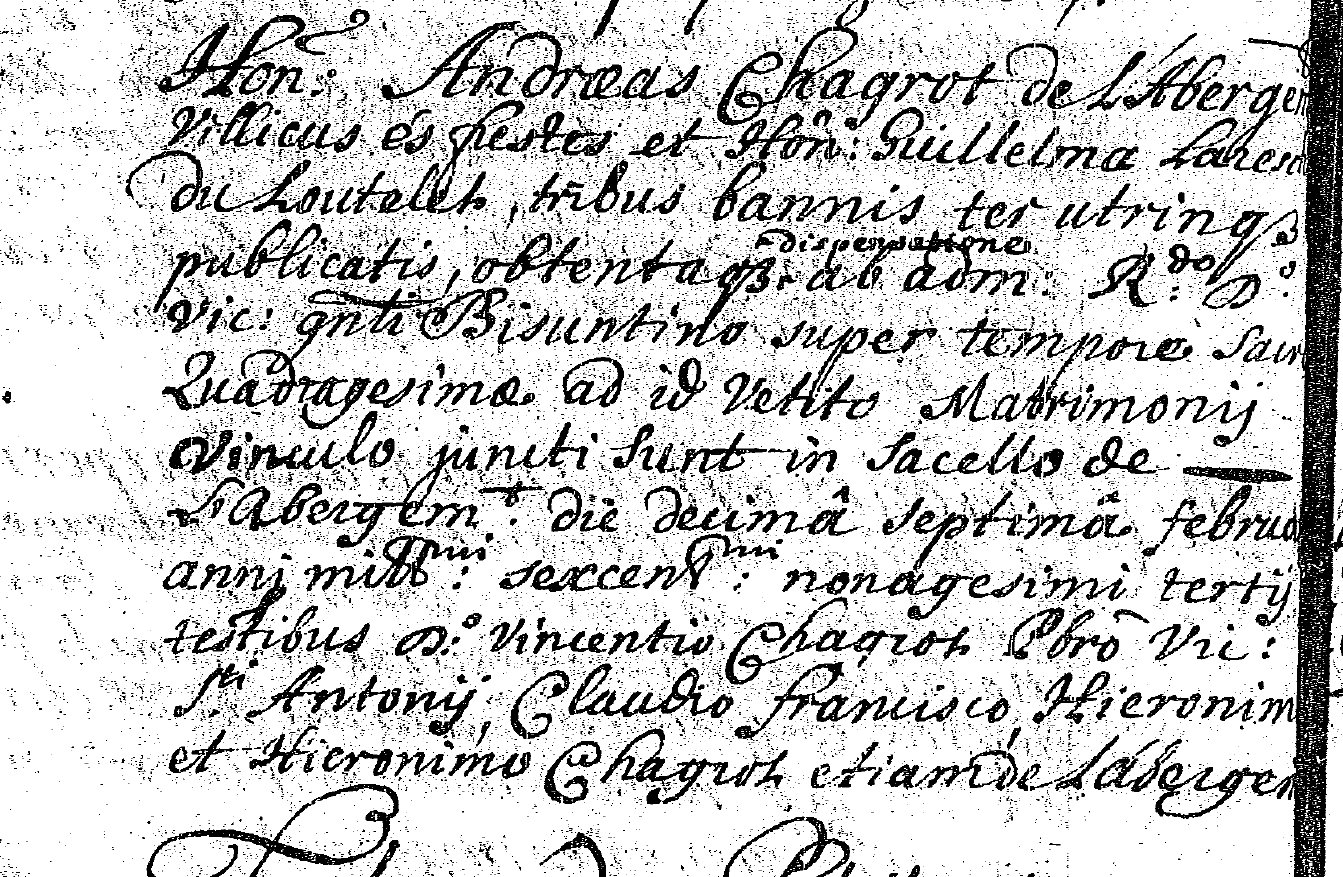 Hon: Andræas Chagrot de L'Aberge
Villicus és prestes et Hon: Guillelma
du Loutelet, tribus bannis ter utrinq3
publicatis, obtentaq3. dispensatione ab adm: R:do D:o
Vic: gnli Bisuntino super tempore Sac
Quadragesimæ ad id Vetito Matrimonij
Vinculo juncti Sunt in Sacello de —
L'Abergemt: die decimâ septimâ februa
anni mill:simi sexcent:simi nonagesimi tertij
testibus D:o Vincentio Chagrot Pbrō Vic:
S.ti Antonij, Claudio francisco, Hieronim
et Hieronimo Chagrot etiam de Láberge